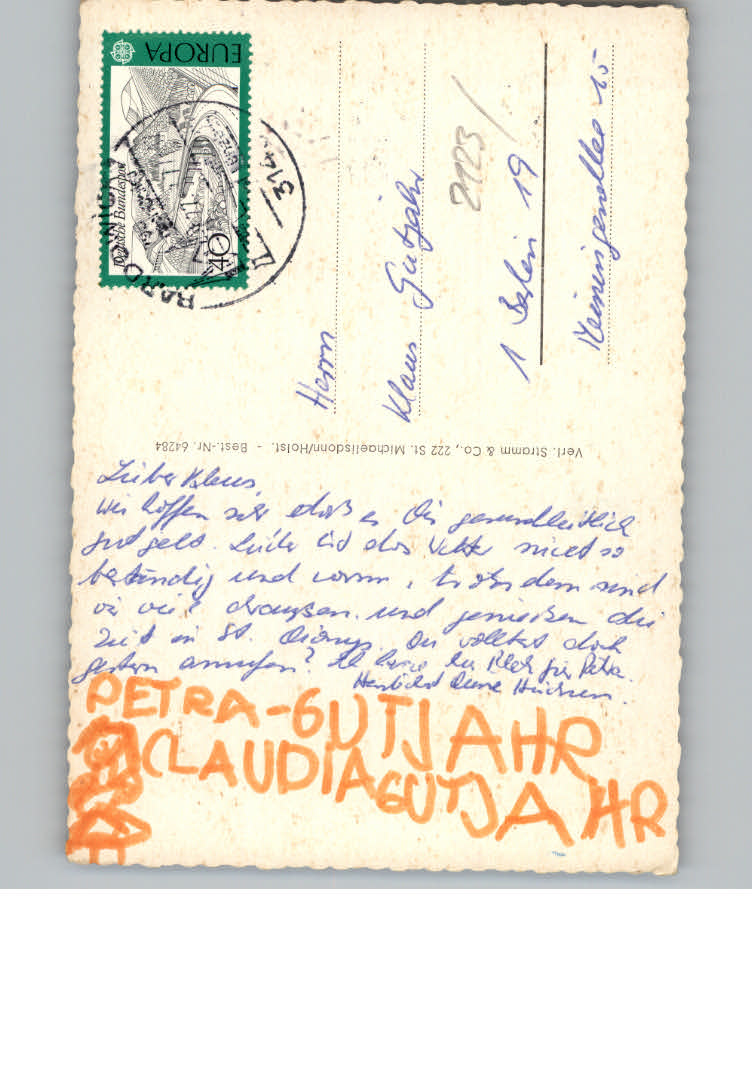 EUROPA
Deutsche Bundespost
40
BARDOWICK
314
Herrn
Klaus Gutjahr
2123/
1 Berlin 19
Meiningenallee 15
Verl. Stramm & Co., 222 St. Michaelisdonn/Holst. - Best.-Nr. 64284
Lieber Klaus,
wir hoffen sehr daß es Dir gesundheitlich
gut geht. Leider ist das Wetter nicht so
beständig und warm, trotzdem sind
wir viel draußen und genießen die
Zeit in St. Dionys. Du wolltest doch
gestern anrufen? Ich für Petra.
Herzlichst Deine
PETRA-GUTJAHR
CLAUDIAGUTJAHR